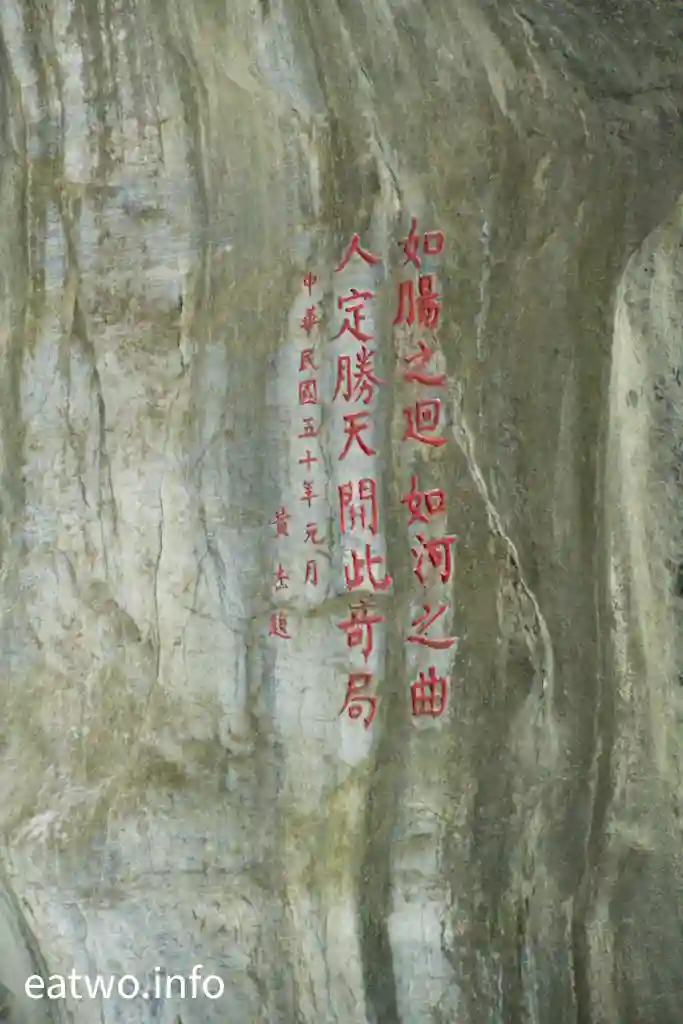 如腸之迴 如河之曲
人定勝天開此奇局
中華民國五十年元月
黃杰題
eatwo.info